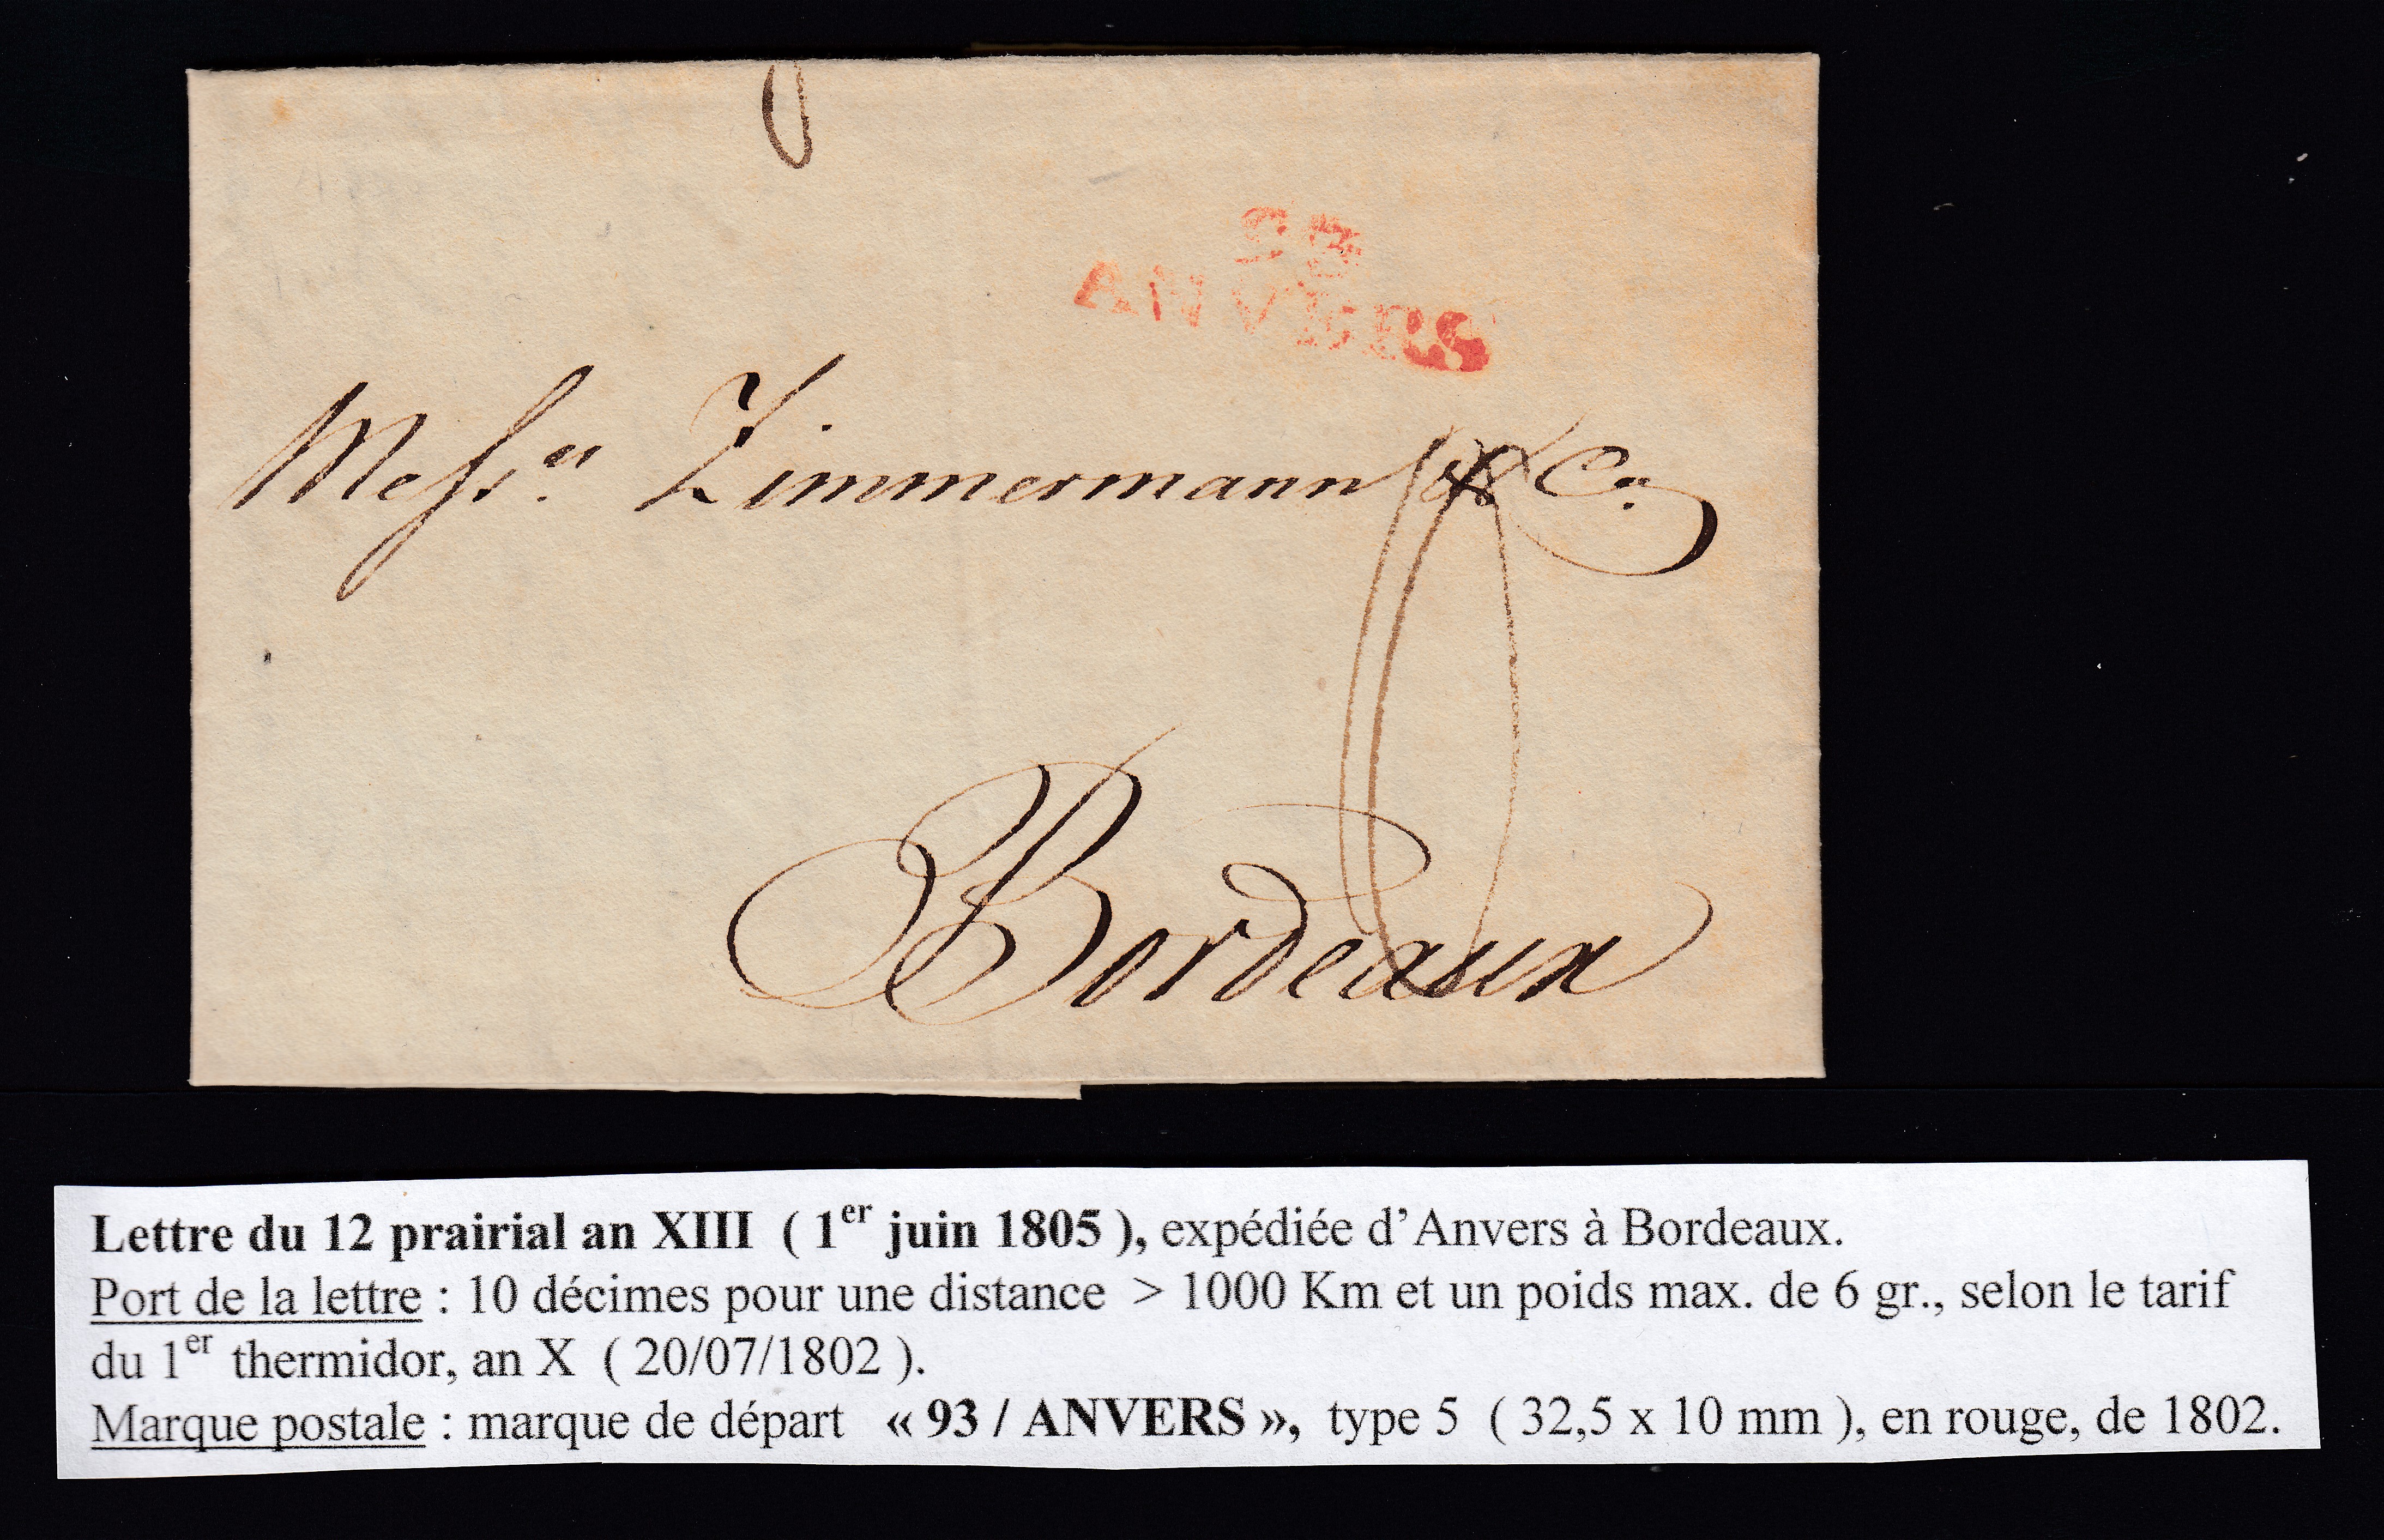 93
ANVERS
Messrs Zimmermann & Co.
10
Bordeaux
Lettre du 12 prairial an XIII ( 1er juin 1805 ), expédiée d’Anvers à Bordeaux.
Port de la lettre : 10 décimes pour une distance > 1000 Km et un poids max. de 6 gr., selon le tarif
du 1er thermidor, an X ( 20/07/1802 ).
Marque postale : marque de départ « 93 / ANVERS », type 5 ( 32,5 x 10 mm ), en rouge, de 1802.